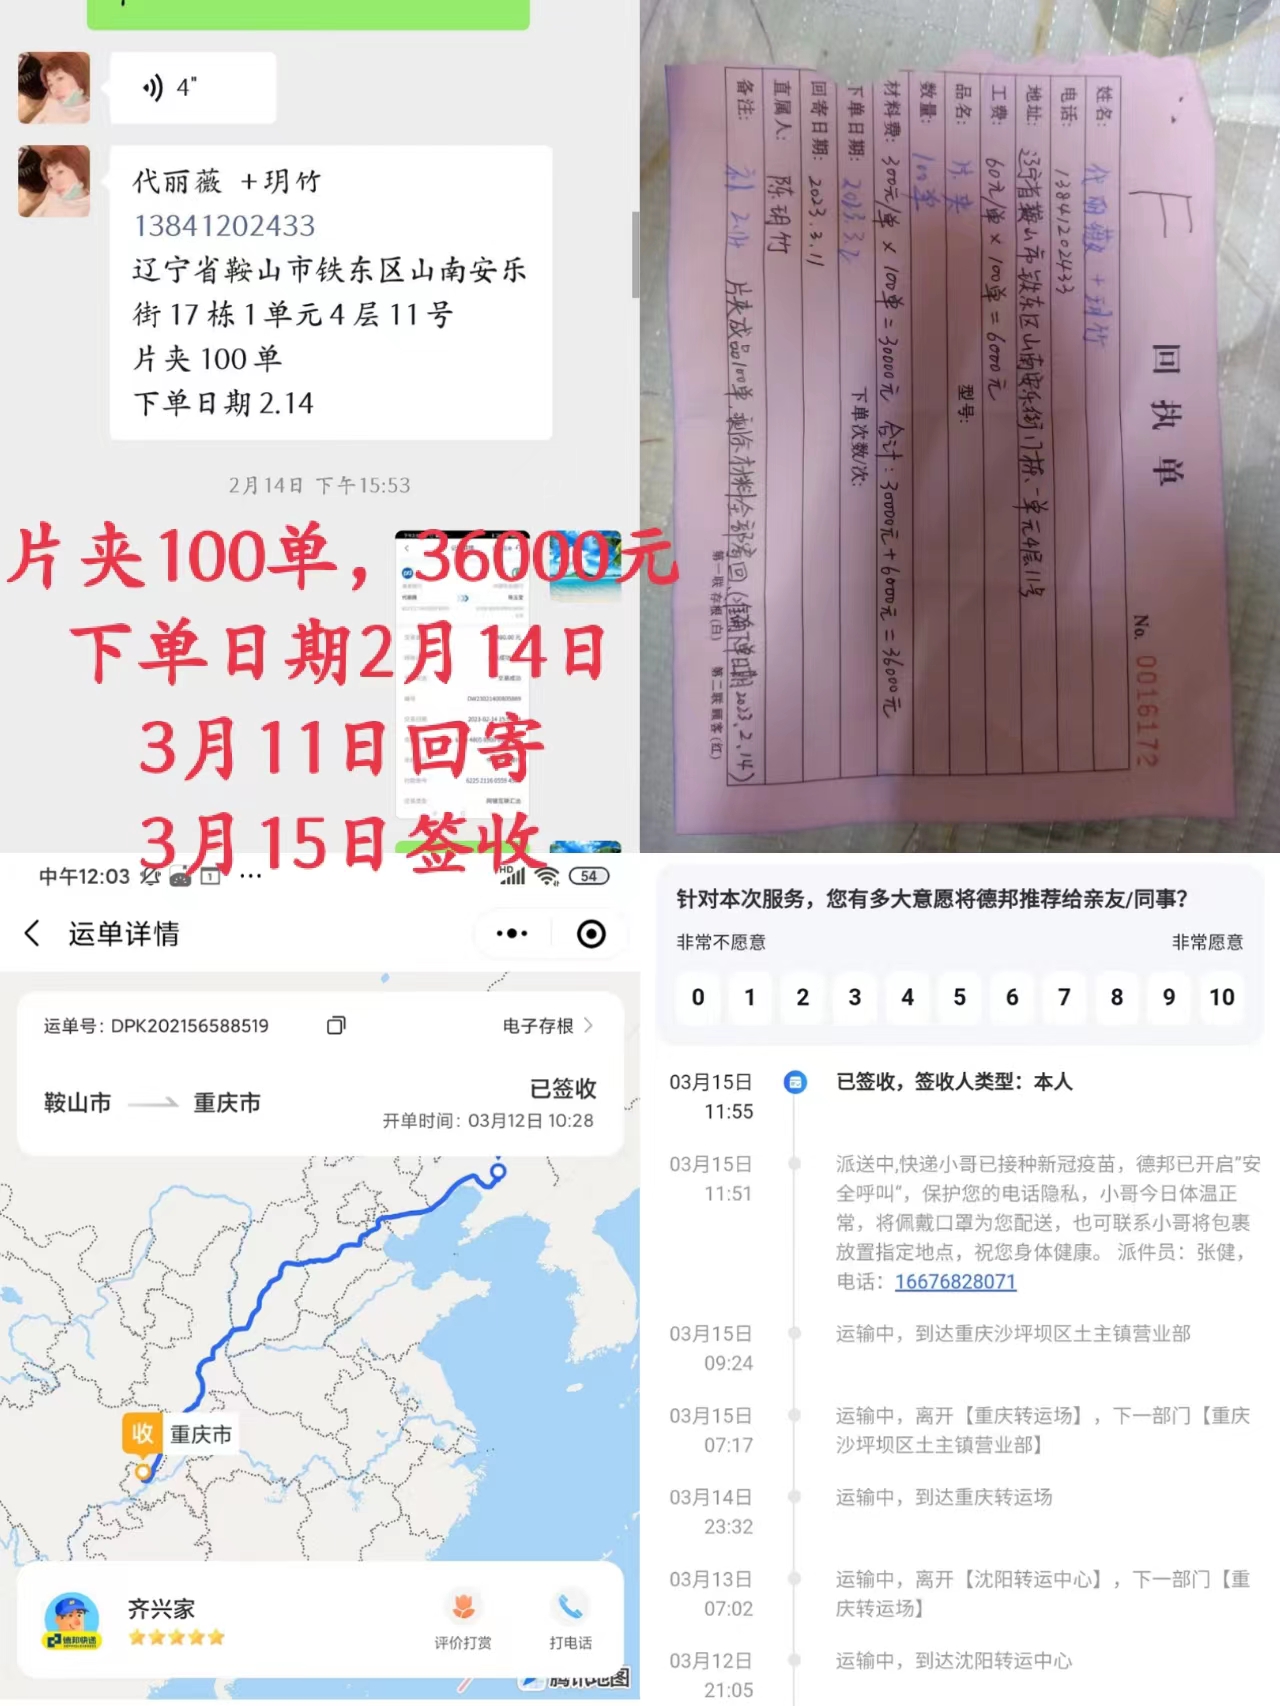 4"
代丽薇 +玥竹
13841202433
辽宁省鞍山市铁东区山南安乐
街17栋1单元4层11号
片夹100单
下单日期2.14
2月14日 下午15:53
片夹100单，36000元
下单日期2月14日
3月11日回寄
3月15日签收
回执单
No. 0016172
姓名: 代丽薇+玥竹
电话: 13841202433
地址: 辽宁省鞍山市铁东区山南安乐街17栋、一单元4层11号
工费: 60元/单×100单=6000元
品名: 片夹 型号:
数量: 100单
材料费: 300元/单×100单=30000元 合计:30000元+6000元=36000元
下单日期: 2023.3.2 下单次数/次:
回寄日期: 2023.3.11
直属人: 陈玥竹
备注: 片夹成品100单,剩余材料全部寄回(准确下单日期2023.2.14)
第一联 存根(白) 第二联 顾客(红)
中午12:03
1
HD
54
运单详情
运单号: DPK202156588519
电子存根
鞍山市
重庆市
已签收
开单时间: 03月12日 10:28
收
重庆市
齐兴家
德邦快递
评价打赏
打电话
腾讯地图
针对本次服务，您有多大意愿将德邦推荐给亲友/同事?
非常不愿意 非常愿意
0 1 2 3 4 5 6 7 8 9 10
03月15日
11:55
已签收，签收人类型：本人
03月15日
11:51
派送中,快递小哥已接种新冠疫苗，德邦已开启"安
全呼叫"，保护您的电话隐私，小哥今日体温正
常，将佩戴口罩为您配送，也可联系小哥将包裹
放置指定地点，祝您身体健康。 派件员：张健，
电话：16676828071
03月15日
09:24
运输中，到达重庆沙坪坝区土主镇营业部
03月15日
07:17
运输中，离开【重庆转运场】，下一部门【重庆
沙坪坝区土主镇营业部】
03月14日
23:32
运输中，到达重庆转运场
03月13日
07:02
运输中，离开【沈阳转运中心】，下一部门【重
庆转运场】
03月12日
21:05
运输中，到达沈阳转运中心